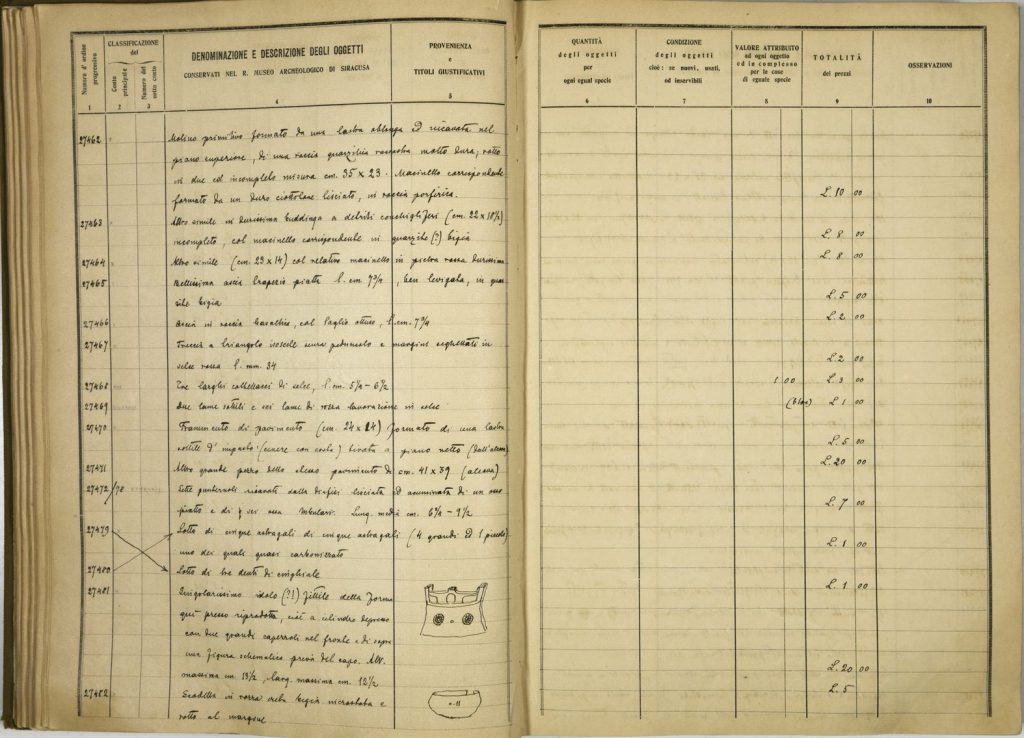 Numero d' ordine progressivo
CLASSIFICAZIONE
del
Conto principale
Numero del sotto conto
DENOMINAZIONE E DESCRIZIONE DEGLI OGGETTI
CONSERVATI NEL R. MUSEO ARCHEOLOGICO DI SIRACUSA
PROVENIENZA
e
TITOLI GIUSTIFICATIVI
QUANTITÀ
degli oggetti
per
ogni eguale specie
CONDIZIONE
degli oggetti
cioè: se nuovi, usati,
od inservibili
VALORE ATTRIBUITO
ad ogni oggetto
ed in complesso
per le cose
di eguale specie
TOTALITÀ
dei prezzi
OSSERVAZIONI
1 2 3 4 5 6 7 8 9 10
27462 Molino primitivo formato da una lastra oblunga ed incavata nel
piano superiore, di una roccia quarzitica rossastra molto dura; rotto
in due ed incompleto misura cm. 35 x 23. Macinello corrispondente
formato da un duro ciottolone lisciato, in roccia porfirica. L. 10 00
27463 Altro simile in durissima puddinga a detriti conchigliferi (cm. 22 x 18½)
incompleto, col macinello corrispondente in quarzite (?) bigia L. 8 00
27464 Altro simile (cm. 23 x 14) col relativo macinello in pietra rossa durissima L. 8 00
27465 Bellissima ascia trapezia piatta l. cm 7¾, ben levigata, in
bigia L. 5 00
27466 Ascia in roccia basaltica, col taglio ottuso, l. cm. 7¾ L. 2 00
27467 Freccia a triangolo isoscele senza peduncolo e margini seghettati in
selce rossa l. mm. 34 L. 2 00
27468 Tre larghi coltellacci di selce, l. cm. 5¼ - 6½ 1 00 L. 3 00
27469 Due lame sottili e sei lame di rozza lavorazione in selce L. 1 00
27470 Frammento di pavimento (cm. 24 x 24) formato di una lastra
sottile d' impasto (cenere con) a piano netto L. 5 00
27471 Altro grande pezzo dello stesso pavimento di cm. 41 x 39 L. 20 00
27472/78 Sette punteruoli ricavati dalla diafisi lisciata ed acuminata di un osso
piatto e di sei ossa tubulari. Lung. media cm. 6¼ - 9½ L. 7 00
27479 Lotto di cinque astragali di cinque astragali (4 grandi ed 1 piccolo)
uno dei quali quasi carbonizzato L. 1 00
27480 Lotto di tre denti di cinghiale L. 1 00
27481 Singolarissimo idolo (?!) fittile della forma
qui presso riprodotta, cioè a cilindro depresso
con due grandi capezzoli nel fronte e di sopra
una figura schematica priva del capo. Alt.
massima cm. 13½, larg. massima cm. 12½ L. 20 00
27482 Scodella in rozza creta bigia incrostata e L. 5
rotta al margine